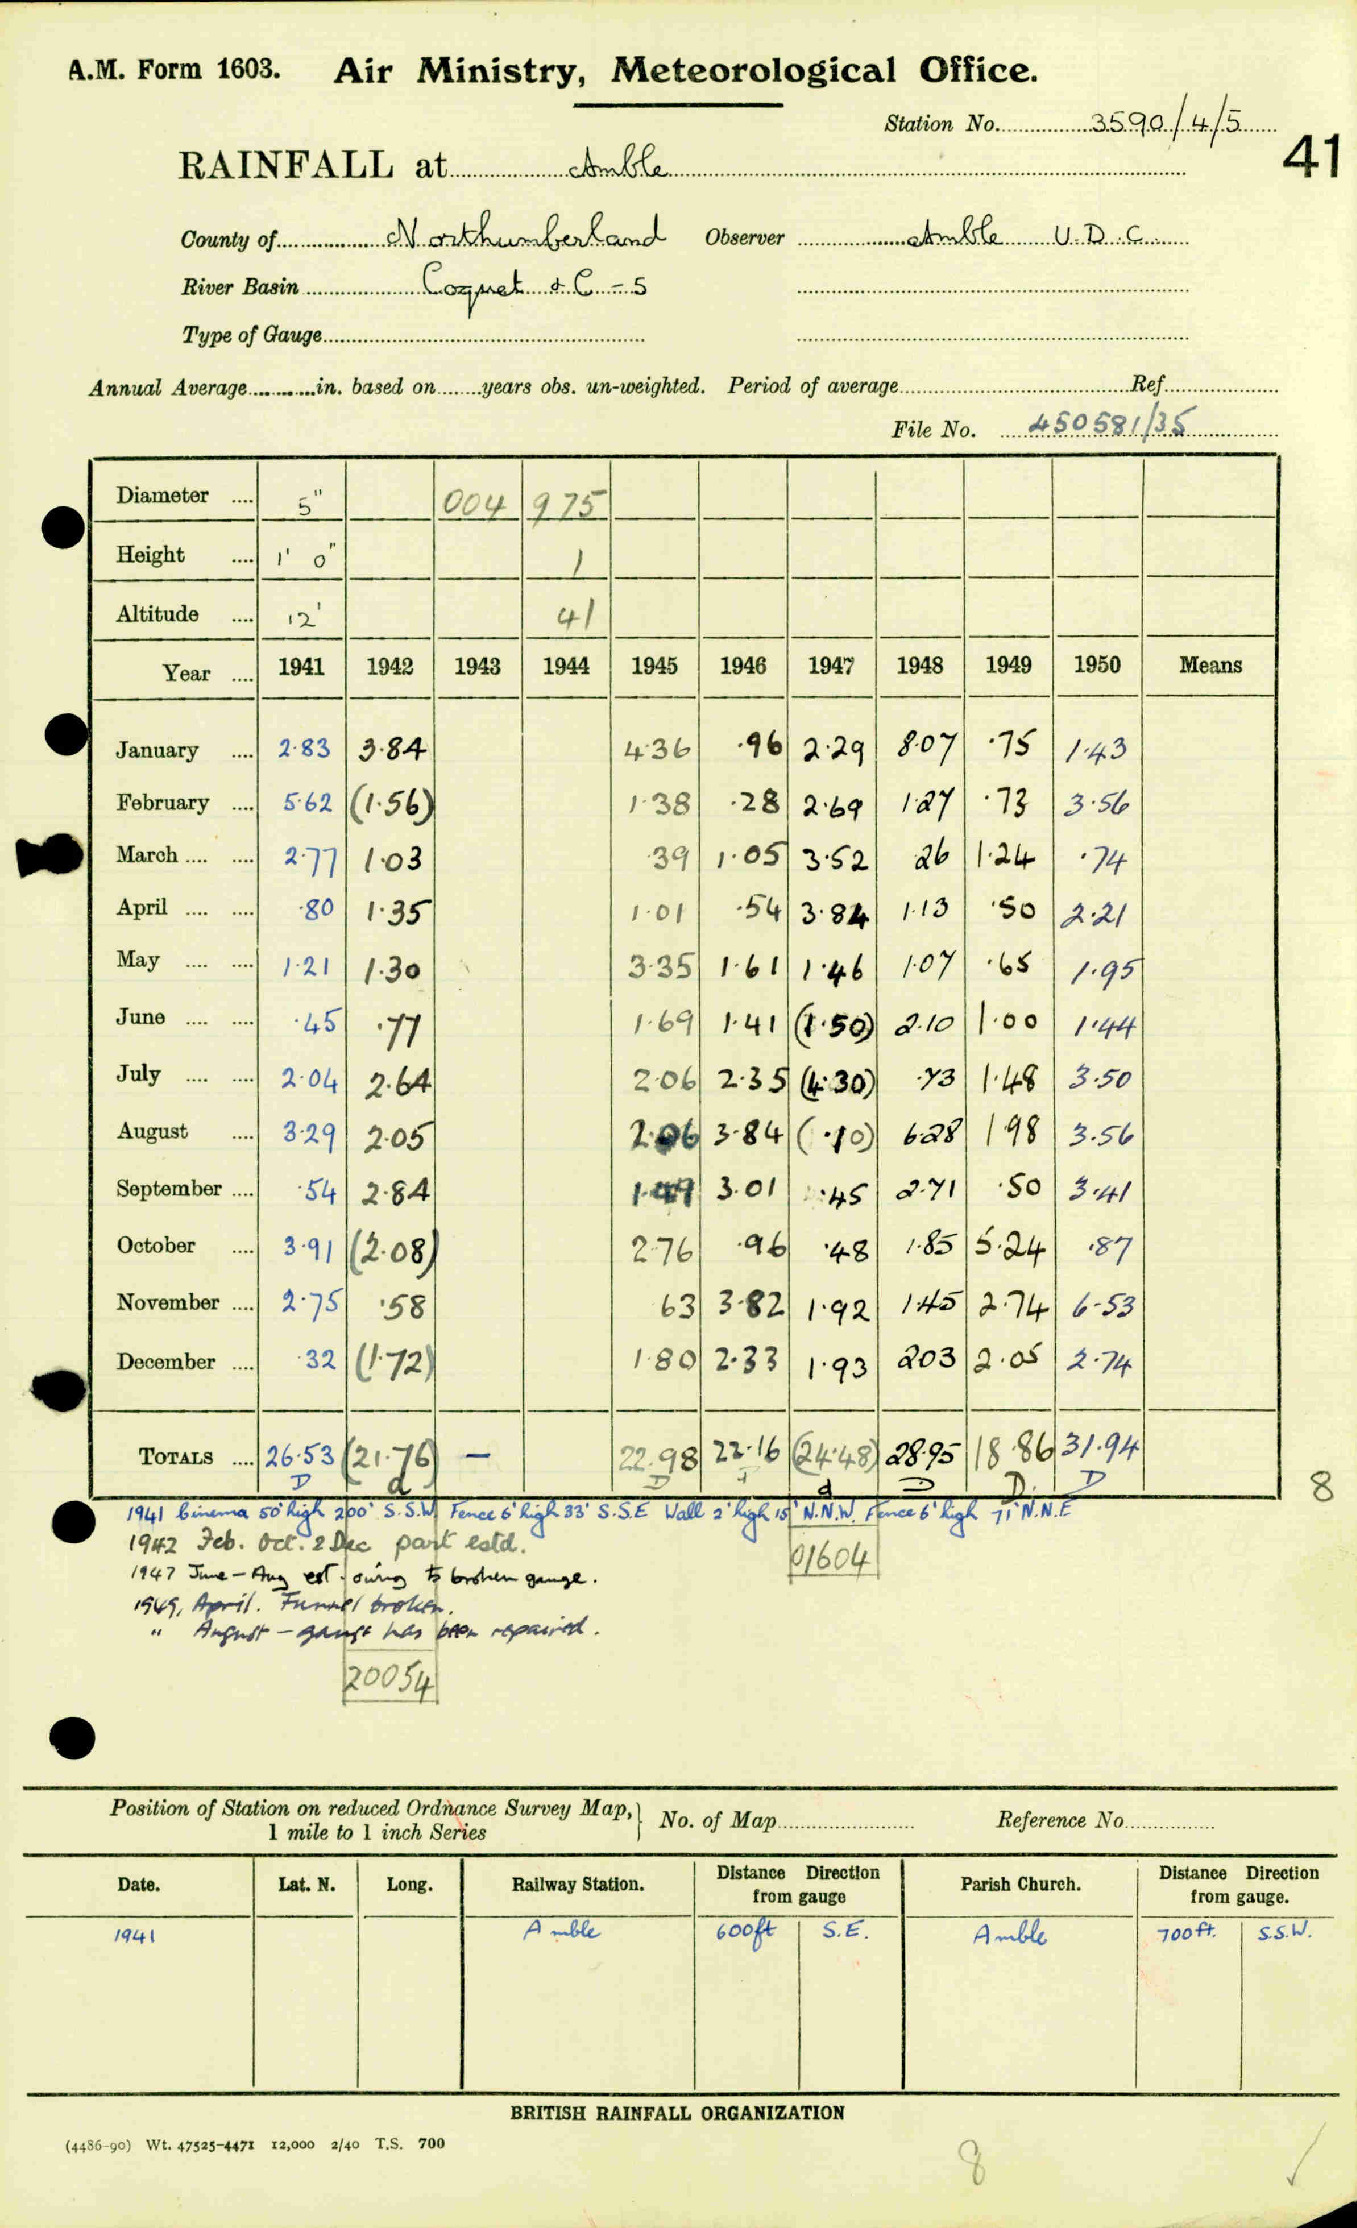 A.M. Form 1603. Air Ministry, Meteorological Office.
Station No. 3590/4/5
41
RAINFALL at Amble
County of Northumberland Observer Amble U.D.C.
River Basin Coquet & C - 5
Type of Gauge
Annual Average in. based on years obs. un-weighted. Period of average Ref
File No. 450581/35
Diameter 5" 004 975
Height 1' 0" 1
Altitude 12' 41
Year 1941 1942 1943 1944 1945 1946 1947 1948 1949 1950 Means
January 2.83 3.84 4.36 .96 2.29 8.07 .75 1.43
February 5.62 (1.56) 1.38 .28 2.69 1.27 .73 3.56
March 2.77 1.03 .39 1.05 3.52 26 1.24 .74
April .80 1.35 1.01 .54 3.84 1.13 .50 2.21
May 1.21 1.30 3.35 1.61 1.46 1.07 .65 1.95
June .45 .77 1.69 1.41 (1.50) 2.10 1.00 1.44
July 2.04 2.64 2.06 2.35 (4.30) .73 1.48 3.50
August 3.29 2.05 2.06 3.84 (.10) 6.28 1.98 3.56
September .54 2.84 1.49 3.01 .45 2.71 .50 3.41
October 3.91 (2.08) 2.76 .96 .48 1.85 5.24 .87
November 2.75 .58 63 3.82 1.92 1.45 2.74 6.53
December .32 (1.72) 1.80 2.33 1.93 2.03 2.05 2.74
TOTALS 26.53 (21.76) — 22.98 22.16 (24.48) 28.95 18.86 31.94
D d D d D D. D
8
1941 Cinema 50' high 200' S.S.W. Fence 6' high 33' S.S.E Wall 2' high 15' N.N.W. Fence 6' high 71' N.N.E
1942 Feb. Oct. & Dec part estd.
01604
1947 June - Aug est. owing to broken gauge.
1949, April. Funnel broken.
" August - gauge has been repaired.
20054
Position of Station on reduced Ordnance Survey Map, 1 mile to 1 inch Series } No. of Map Reference No.
Date. Lat. N. Long. Railway Station. Distance Direction from gauge Parish Church. Distance Direction from gauge.
1941 Amble 600ft S.E. Amble 700ft. S.S.W.
BRITISH RAINFALL ORGANIZATION
(4486-90) Wt. 47525-4471 12,000 2/40 T.S. 700
8